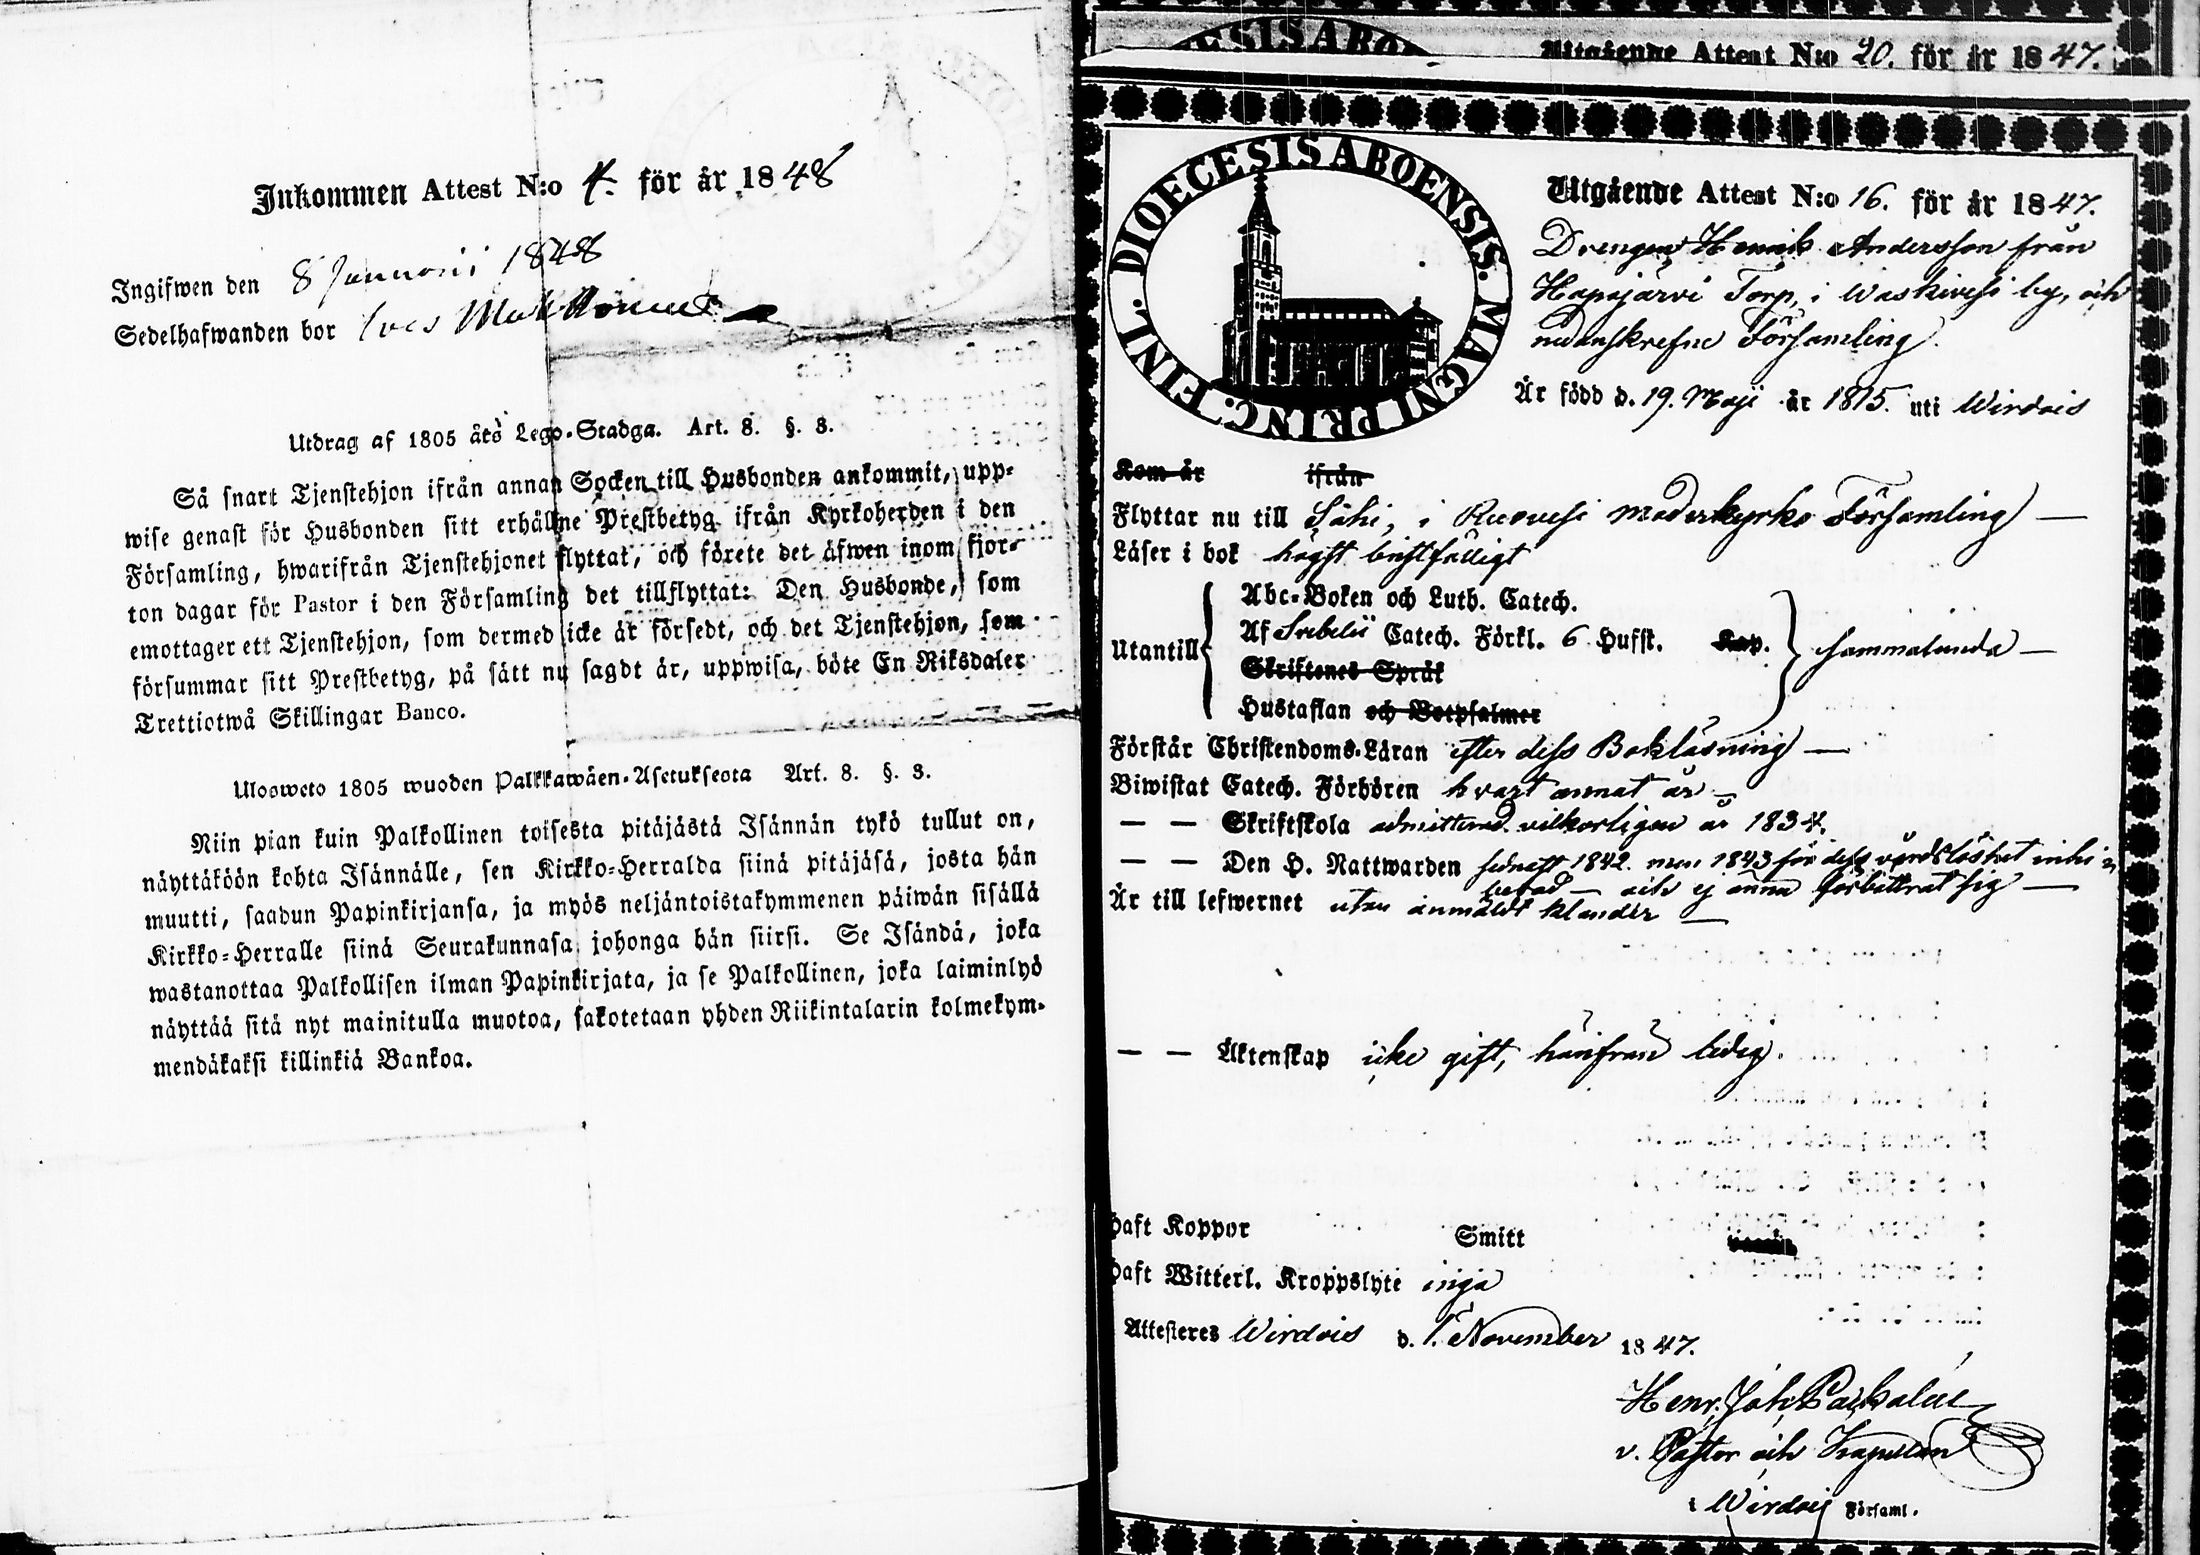 Inkommen Attest N:o 4. för år 1848
Ingifwen den 8 Januarii 1848
Sedelhafwanden bor hos
Utdrag af 1805 års Lego-Stadga. Art. 8. §. 3.
Så snart Tjenstehjon ifrån annan Socken till Husbonden ankommit, upp-
wise genast för Husbonden sitt erhållne Prestbetyg ifrån Kyrkoherden i den
Församling, hwarifrån Tjenstehjonet flyttat, och förete det äfwen inom fjor-
ton dagar för Pastor i den Församling det tillflyttat: Den Husbonde, som
emottager ett Tjenstehjon, som dermed icke är försedt, och det Tjenstehjon, som
försummar sitt Prestbetyg, på sätt nu sagdt är, uppwisa, böte En Riksdaler
Trettiotwå Skillingar Banco.
Ulosweto 1805 wuoden Palkkawäen-Asetuksesta Art. 8. §. 3.
Niin pian kuin Palkollinen toisesta pitäjästä Isännän tykö tullut on,
näyttäköön kohta Isännälle, sen Kirkko-Herralda siinä pitäjäsä, josta hän
muutti, saadun Papinkirjansa, ja myös neljäntoistakymmenen päiwän sisällä
Kirkko-Herralle siinä Seurakunnasa johonga hän siirsi. Se Isändä, joka
wastanottaa Palkollisen ilman Papinkirjata, ja se Palkollinen, joka laiminlyö
näyttää sitä nyt mainitulla muotoa, sakotetaan yhden Riikintalarin kolmekym-
mendäkaksi killinkiä Bankoa.
Utgående Attest N:o 20. för år 1847.
DIOECESIS ABOENSIS. MAGNI PRINC. FINL.
Utgående Attest N:o 16. för år 1847.
Drengen Henrik Andersson från
Hapajärvi Torp, i Waskivesi by, och
nedanskrefne Församling.
Är född d. 19. Maji år 1815. uti Wirdois
Kom år ifrån
Flyttar nu till i Ruovesi moderkyrko Församling
Läser i bok högst bristfälligt
Abc-Boken och Luth. Catech.
Utantill Af Svebelii Catech. Förkl. 6 Hufst. Kap. sammalunda
Skriftenes Språk
Hustaflan och Botpsalmer
Förstår Christendoms-Läran efter dess Bokläsning
Biwistat Catech. Förhören hvart annat år
— — Skriftskola admitterad vilkorligen år 1834.
— — Den H. Nattwarden sednast 1842. men 1843 för dess vårdslöshet inhi-
berad — och ej ännu förbättrat sig —
Är till lefwernet utan anmäldt klander
— — Äktenskap icke gift, härifrån ledig.
Haft Koppor Smitt
Haft Witterl. Kroppslyte inga
Attesteres Wirdois d. 1. November 1847.
Henr. Joh. Packalén
v. Pastor och Kapellan
i Wirdois Församl.